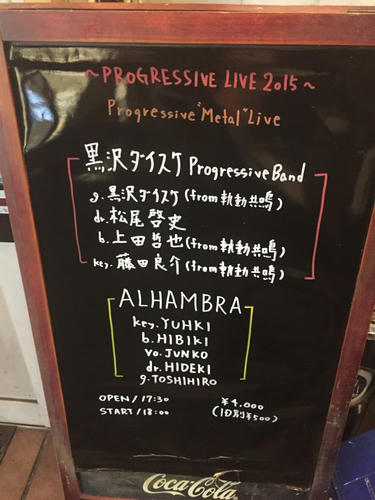 ~PROGRESSIVE LIVE 2015~
Progressive "Metal" Live
黒沢ダイスケ Progressive Band
g. 黒沢ダイスケ (from 執動共鳴)
dr. 松尾啓史
b. 上田哲也 (from 執動共鳴)
key. 藤田良介 (from 執動共鳴)
ALHAMBRA
key. YUHKI
b. HIBIKI
vo. JUNKO
dr. HIDEKI
g. TOSHIHIRO
OPEN / 17:30 ¥4.000
START / 18:00 (1D別¥500)
Coca-Cola